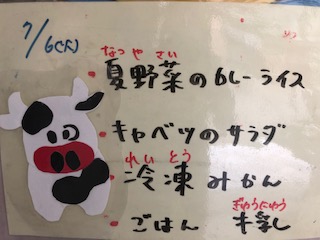 7/6(火)
なつ や さい
夏野菜のカレーライス
キャベツのサラダ
れい とう
冷凍みかん
ぎゅうにゅう
ごはん 牛乳